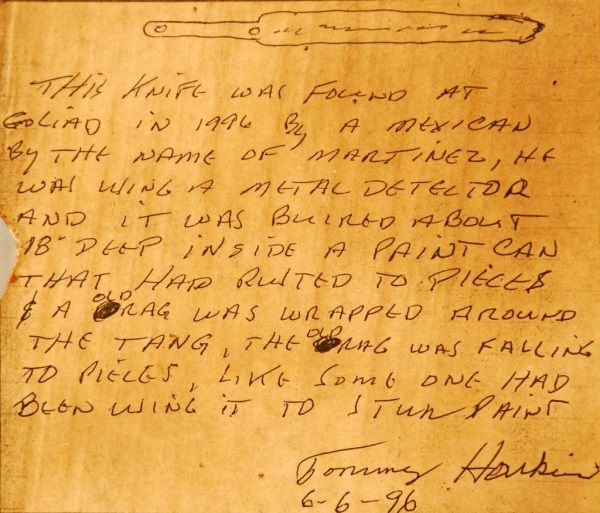 THIS KNIFE WAS FOUND AT
GOLIAD IN 1996 By A MEXICAN
By THE NAME OF MARTINEZ, HE
WAS USING A METAL DETECTOR
AND IT WAS BUIRED ABOUT
18" DEEP INSIDE A PAINT CAN
THAT HAD RUSTED TO PIECES
& A OLD RAG WAS WRAPPED AROUND
THE TANG, THE OLD RAG WAS FALLING
TO PIECES, LIKE SOME ONE HAD
BEEN USING IT TO STUR PAINT
Tommy
6-6-96